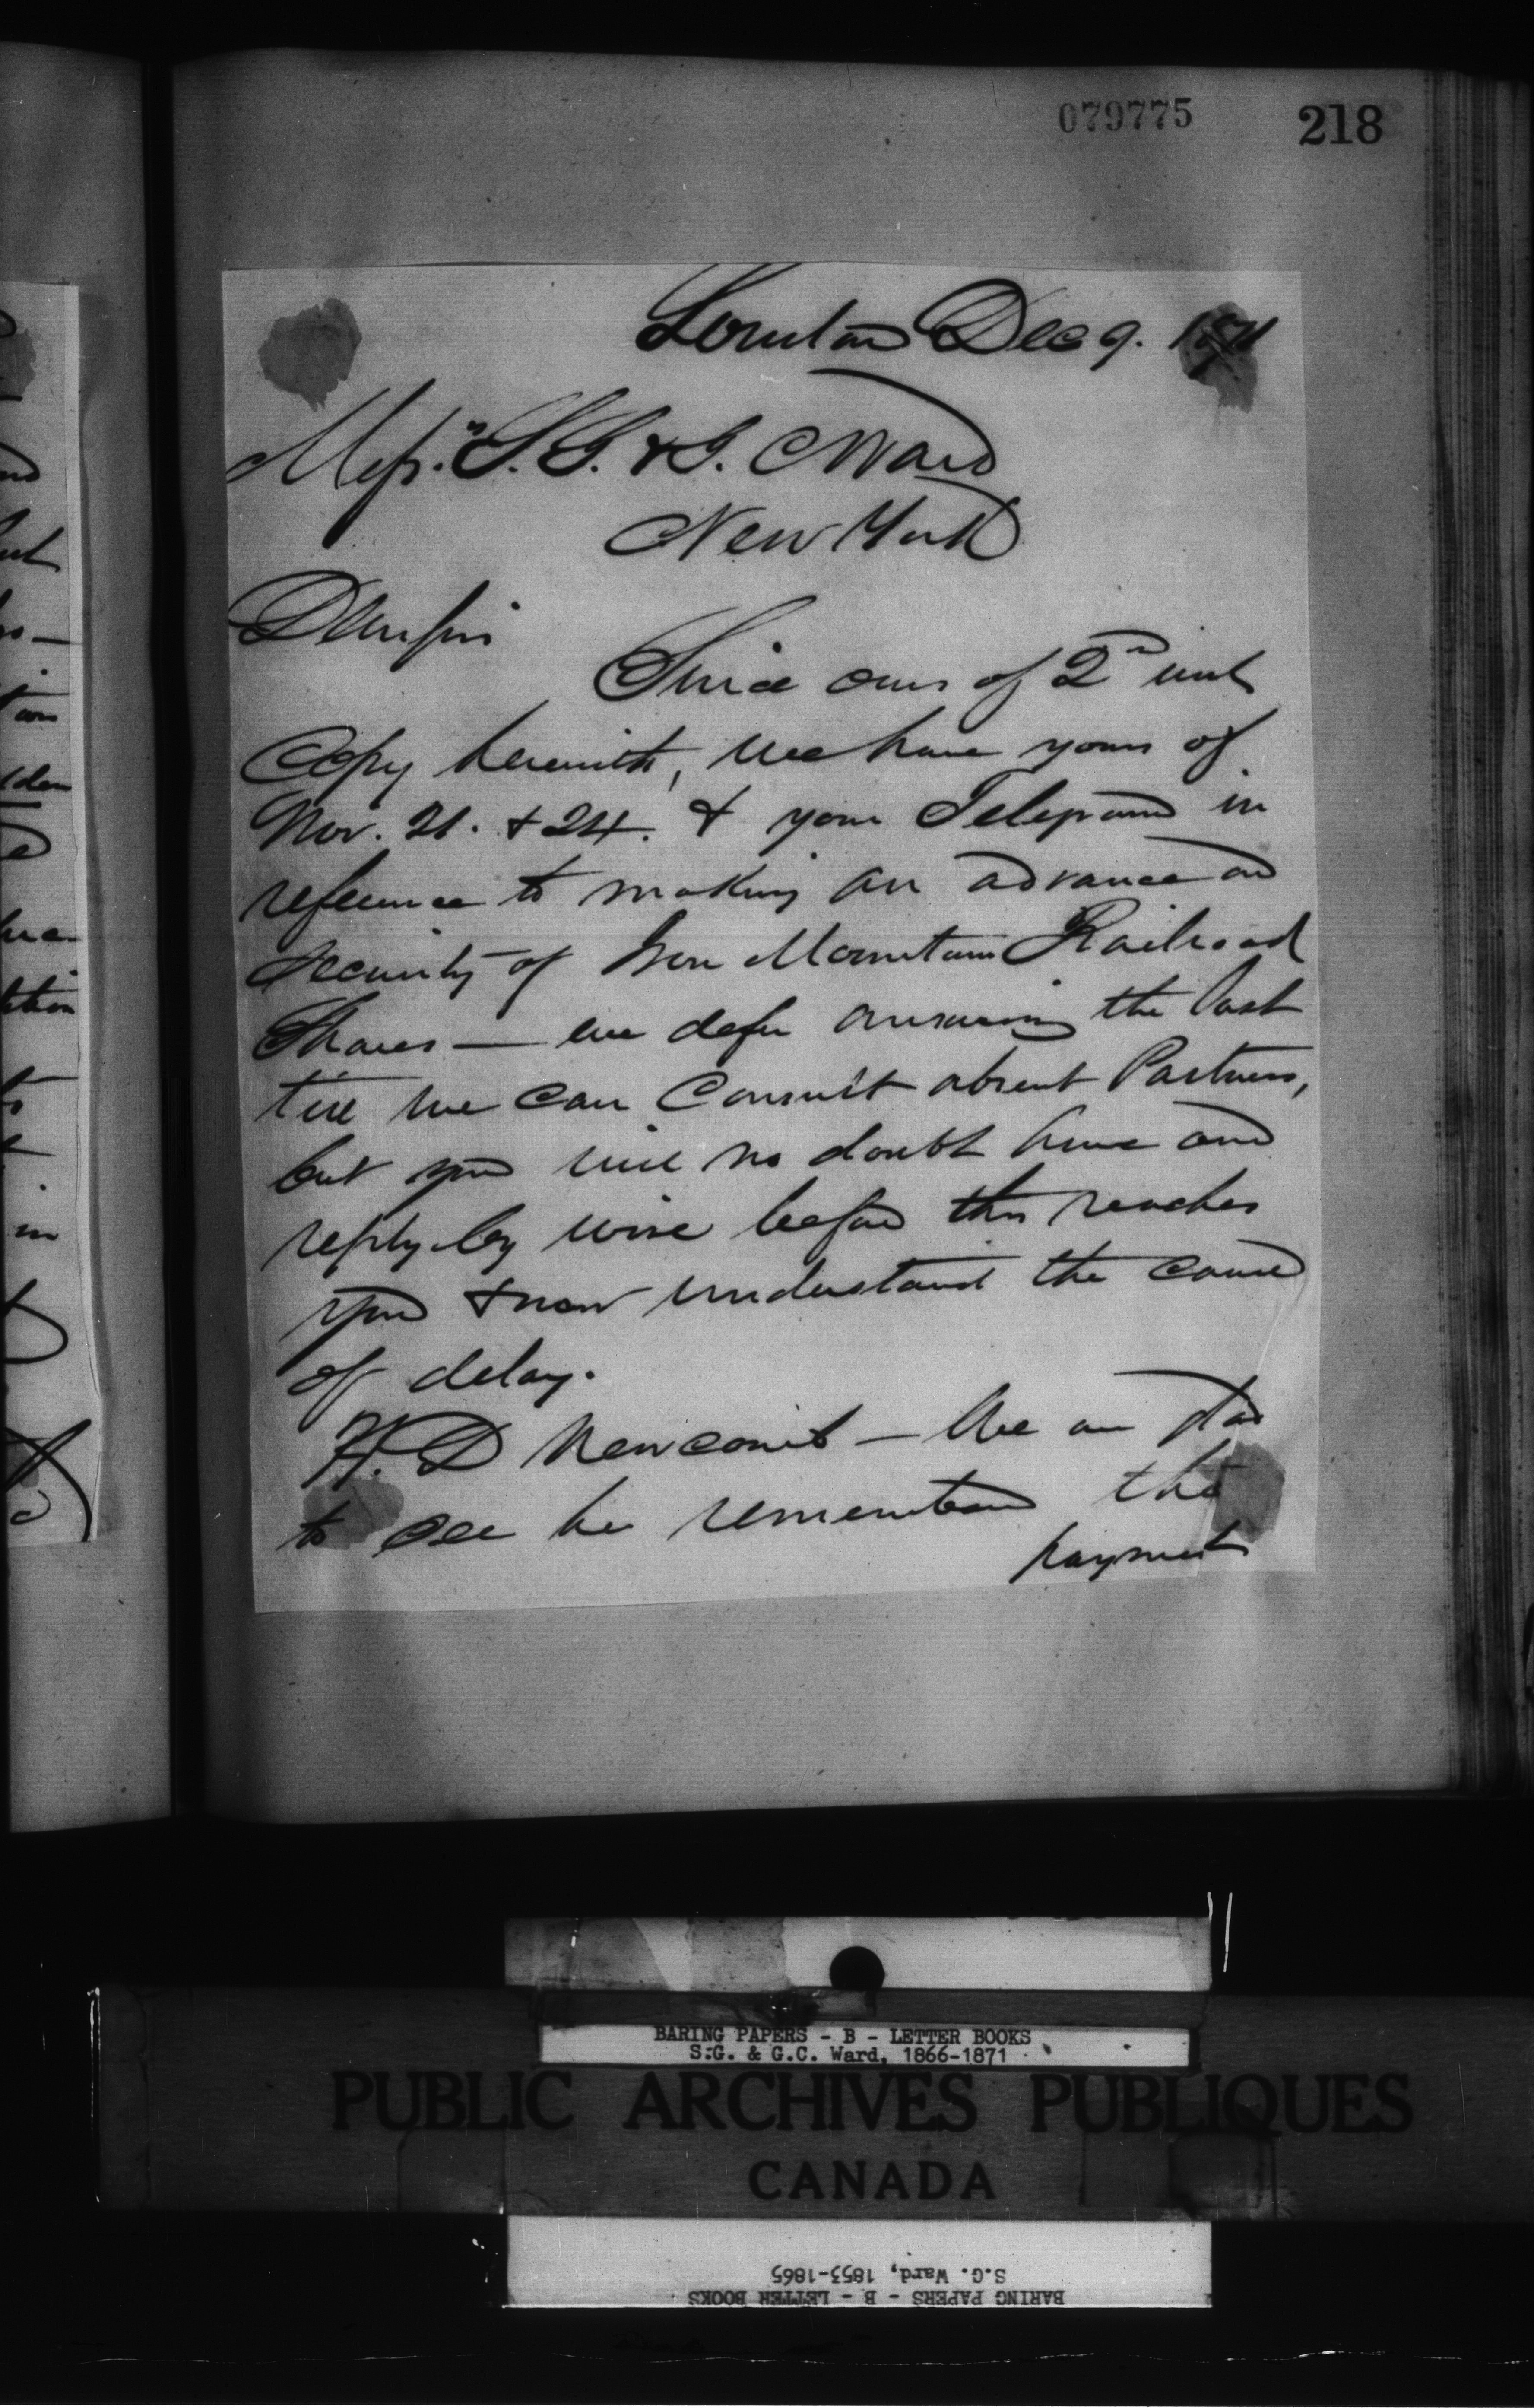 079775 218
London Dec 9. 1871
Messrs. S. G. & G. C Ward
New York
Dear Sirs
Since ours of 2nd inst
Copy herewith, we have yours of
Nov. 21. & 24. & your Telegram in
reference to making an advance on
security of Iron Mountain Railroad
Shares — we defer answering the last
till we can Consult absent Partners,
but you will no doubt have our
reply by wire before this reaches
you & now understand the cause
of delay.
H. D Newcomb — We are glad
to see he remembers the
payment
BARING PAPERS - B - LETTER BOOKS
S.G. & G.C. Ward, 1866-1871
PUBLIC ARCHIVES PUBLIQUES
CANADA
BARING PAPERS - B - LETTER BOOKS
S.G. Ward, 1853-1865